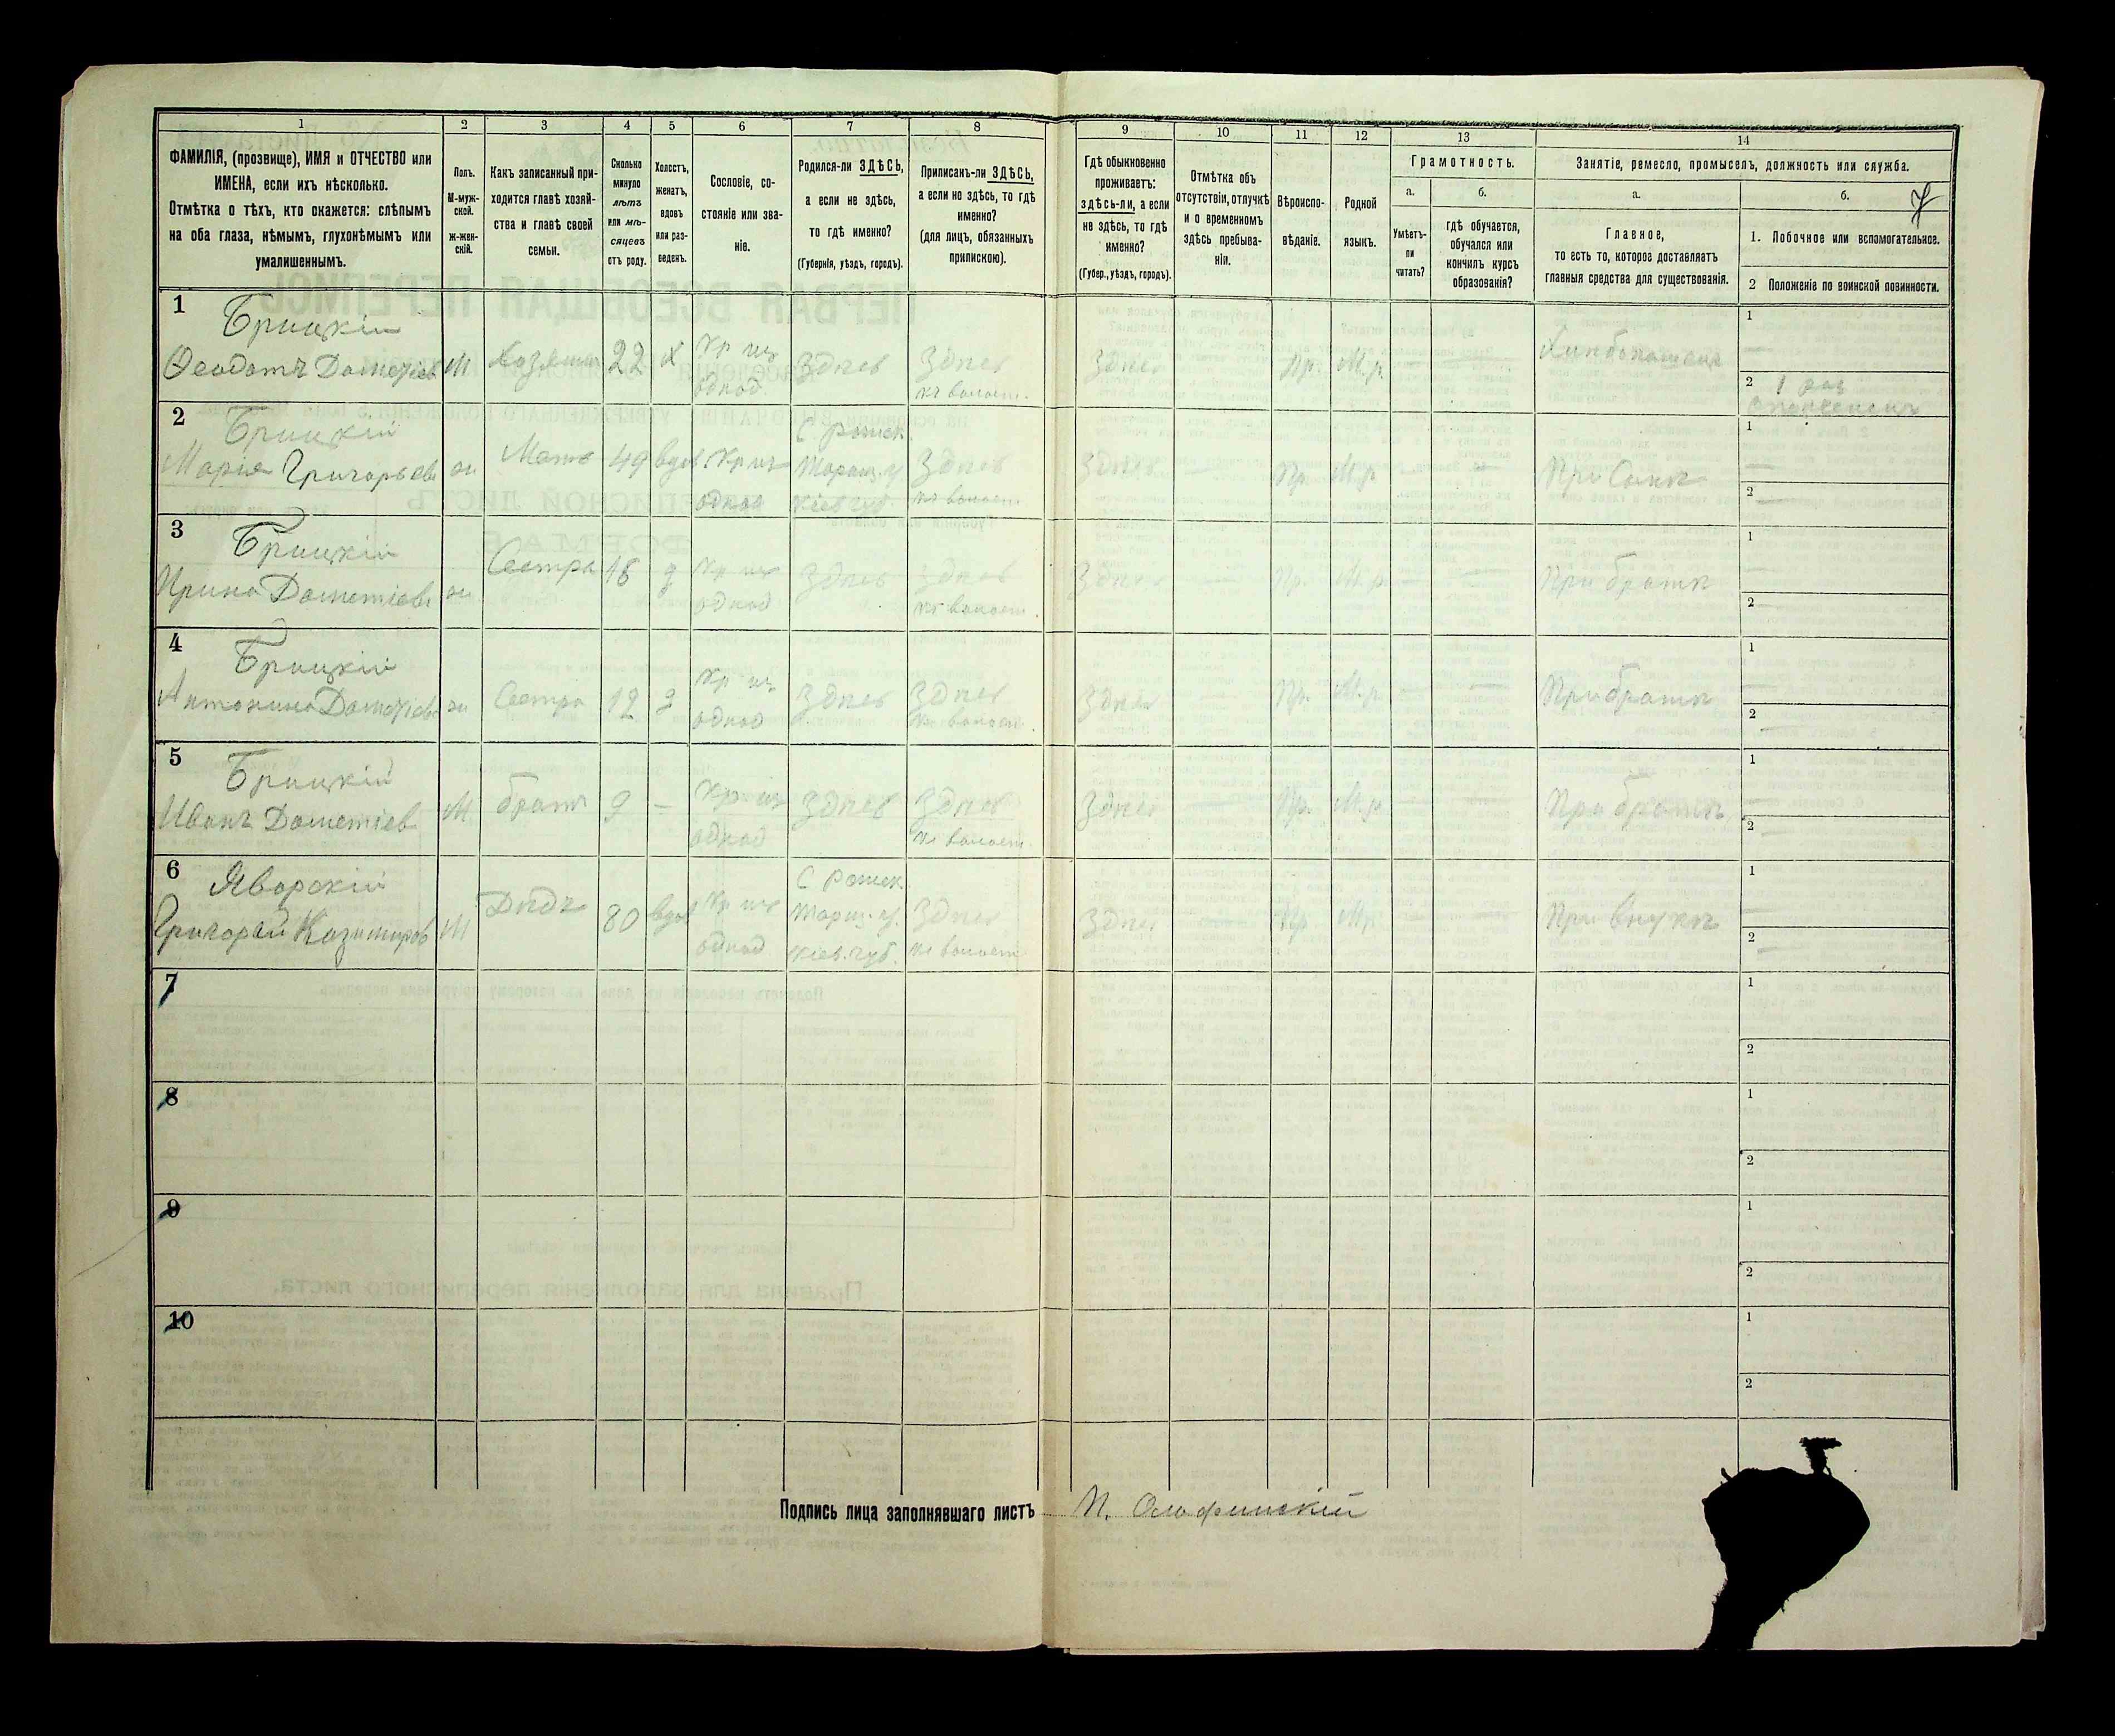 1 2 3 4 5 6 7 8 9 10 11 12 13 14
ФАМИЛІЯ, (прозвище), ИМЯ и ОТЧЕСТВО или
ИМЕНА, если ихъ нѣсколько.
Отмѣтка о тѣхъ, кто окажется: слѣпымъ
на оба глаза, нѣмымъ, глухонѣмымъ или
умалишеннымъ.
Полъ.
М-муж-
ской.
Ж-жен-
скій.
Какъ записанный при-
ходится главѣ хозяй-
ства и главѣ своей
семьи.
Сколько
минуло
лѣтъ
или мѣ-
сяцевъ
отъ роду.
Холостъ,
женатъ,
вдовъ
или раз-
веденъ.
Сословіе, со-
стояніе или зва-
ніе.
Родился-ли ЗДѢСЬ,
а если не здѣсь,
то гдѣ именно?
(Губернія, уѣздъ, городъ).
Приписанъ-ли ЗДѢСЬ,
а если не здѣсь, то гдѣ
именно?
(для лицъ, обязанныхъ
припискою).
Гдѣ обыкновенно
проживаетъ:
здѣсь-ли, а если
не здѣсь, то гдѣ
именно?
(Губер., уѣздъ, городъ).
Отмѣтка объ
отсутствіи, отлучкѣ
и о временномъ
здѣсь пребыва-
ніи.
Вѣроиспо-
вѣданіе.
Родной
языкъ.
Грамотность.
а.
Умѣетъ-
ли
читать?
б.
гдѣ обучается,
обучался или
кончилъ курсъ
образованія?
Занятіе, ремесло, промыселъ, должность или служба.
а.
Главное,
то есть то, которое доставляетъ
главныя средства для существованія.
б.
7
1. Побочное или вспомогательное.
2 Положеніе по воинской повинности.
1 Брицкій
Ѳеодотъ Дометіев М Хозяинъ 22 х Кр из
однод Здѣсь Здѣсь
къ волост. Здѣсь Пр. М.р. — Хлѣбопашецъ 1 —
2 1 раз
2 Брицкій
Марія Григорьева ж Мать 49 вдов. Кр из
однод С
Таращ. у
Кіев губ. Здѣсь
къ волост. Здѣсь — Пр. М.р. — — При Сынѣ 1 —
2 —
3 Брицкій
Ирина Дометіева ж Сестра д Кр из
однод Здѣсь Здѣсь
къ волост. Здѣсь — Пр. М.р. — — При братѣ 1 —
2 —
4 Брицкій
Антонина Дометіева ж Сестра 12 д Кр из
однод Здѣсь Здѣсь
къ волост. Здѣсь — Пр. М.р. — — При братѣ 1 —
2 —
5 Брицкій
Иванъ Дометіев М братъ 9 — Кр из
однод Здѣсь Здѣсь
къ волост. Здѣсь — Пр. М.р. — — При братѣ 1 —
2 —
6 Яворскій
Григорій Казимиров М Дѣдъ 80 вдов Кр из
однод С
Таращ. у.
Кіев. губ. Здѣсь
къ волост Здѣсь — Пр. М.р. — — При внукѣ 1
2 —
7 1
2
8 1
2
9 1
2
10 1
2
Подпись лица заполнявшаго листъ